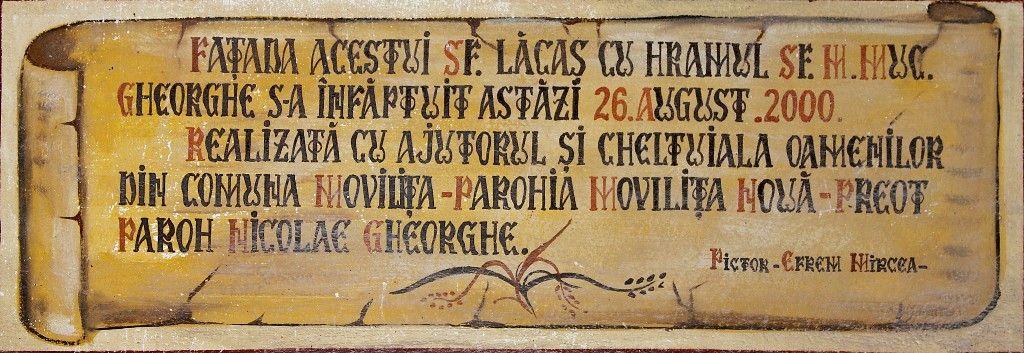 FAȚADA ACESTUI SF. LĂCAȘ CU HRAMUL SF. M. MUC.
GHEORGHE S-A ÎNFĂPTUIT ASTĂZI 26.AUGUST.2000.
REALIZATĂ CU AJUTORUL ȘI CHELTUIALA OAMENILOR
DIN COMUNA MOVILIȚA-PAROHIA MOVILIȚA NOUĂ-PREOT
PAROH NICOLAE GHEORGHE.
PICTOR-EFREM MIRCEA-